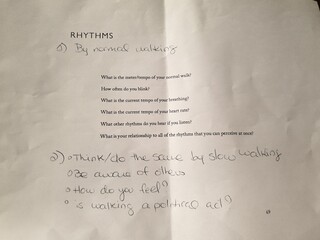 RHYTHMS
1) By normal walking
What is the meter/tempo of your normal walk?
How often do you blink?
What is the current tempo of your breathing?
What is the current tempo of your heart rate?
What other rhythms do you hear if you listen?
What is your relationship to all of the rhythms that you can perceive at once?
2) Think/do the same by slow walking
Be aware of others
How do you feel?
is walking a political act?